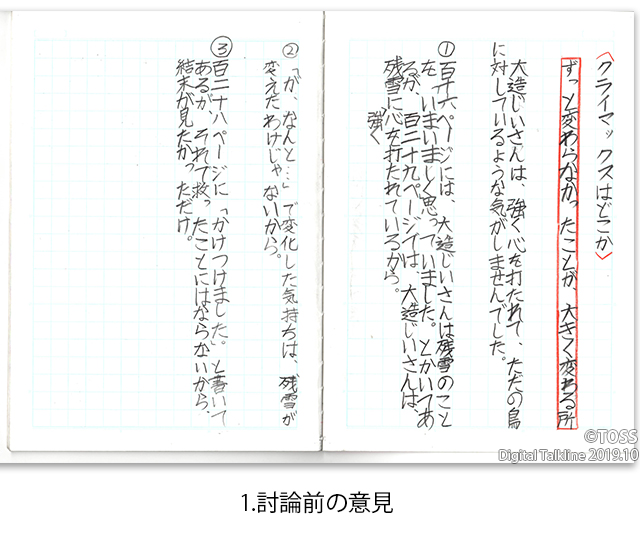 〈クライマックスはどこか〉
ずっと変わらなかったことが、大きく変わる所
大造じいさんは、強く心を打たれて、ただの鳥
に対しているような気がしませんでした。
①百十六ページには、大造じいさんは残雪のこと
を、いまいましく思っていました。とかいてあ
るが、百二十九ページでは、大造じいさんは、
残雪に強く心を打たれているから。
②「が、なんと…」で変化した気持ちは、残雪が
変えたわけじゃないから。
③百二十八ページに「かけつけました」。と書いて
あるが、それで救ったことにはならないから、
結末が見たかっただけ。
©TOSS
Digital Talkline 2019.10
1.討論前の意見